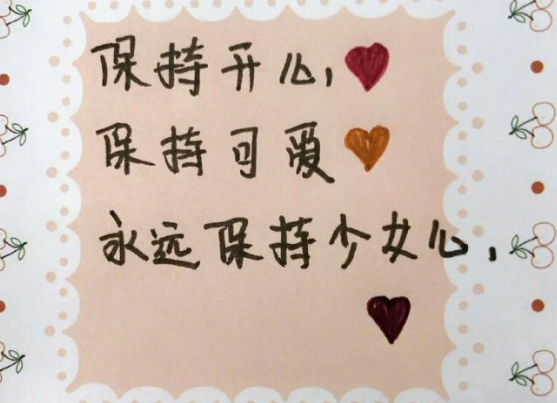 保持开心,
保持可爱
永远保持少女心,